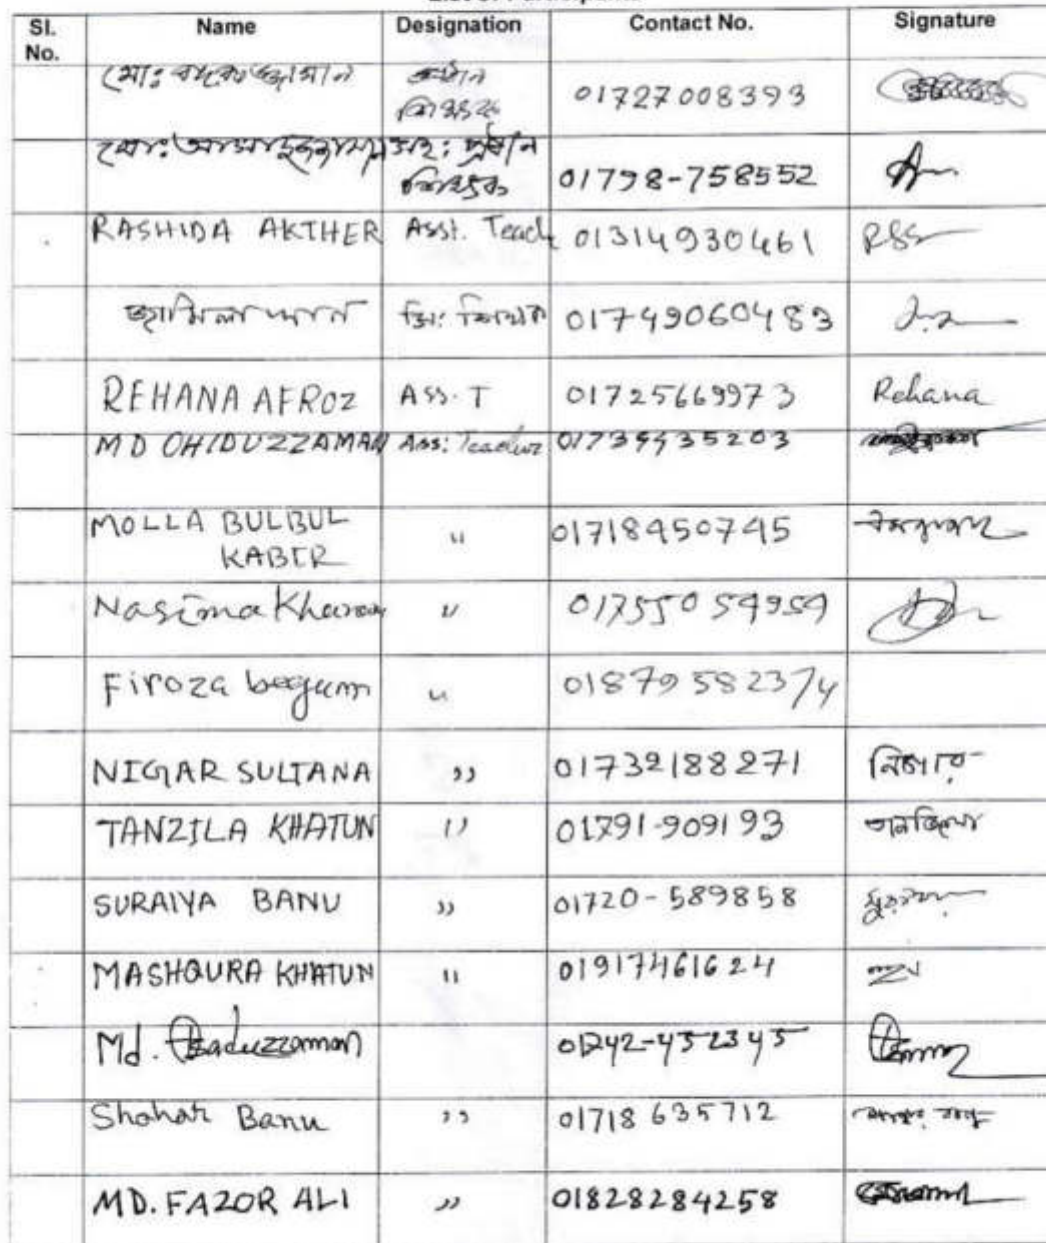 Sl. No. Name Designation Contact No. Signature
মোঃ প্রধান শিক্ষক 01727008393
মোঃ আসাদুজ্জামান সহ: প্রধান শিক্ষক 01798-758552
RASHIDA AKTHER Asst. Teach 01314930461
শিক্ষক 01749060483
REHANA AFROZ Ass. T 01725669973 Rehana
MD OHIDUZZAMAN Ass: Teacher 01739935203
MOLLA BULBUL " 01718450745
KABIR
Nasima " 01755054954
Firoza begum " 01879582374
NIGAR SULTANA " 01732188271 নিগার
TANZILA KHATUN " 01791-909193 তানজিলা
SURAIYA BANU " 01720-589858
MASHQURA KHATUN " 01917461624
Md. Asaduzzaman 01242-452345
Shahar Banu " 01718635712
MD. FAZOR ALI " 01828284258